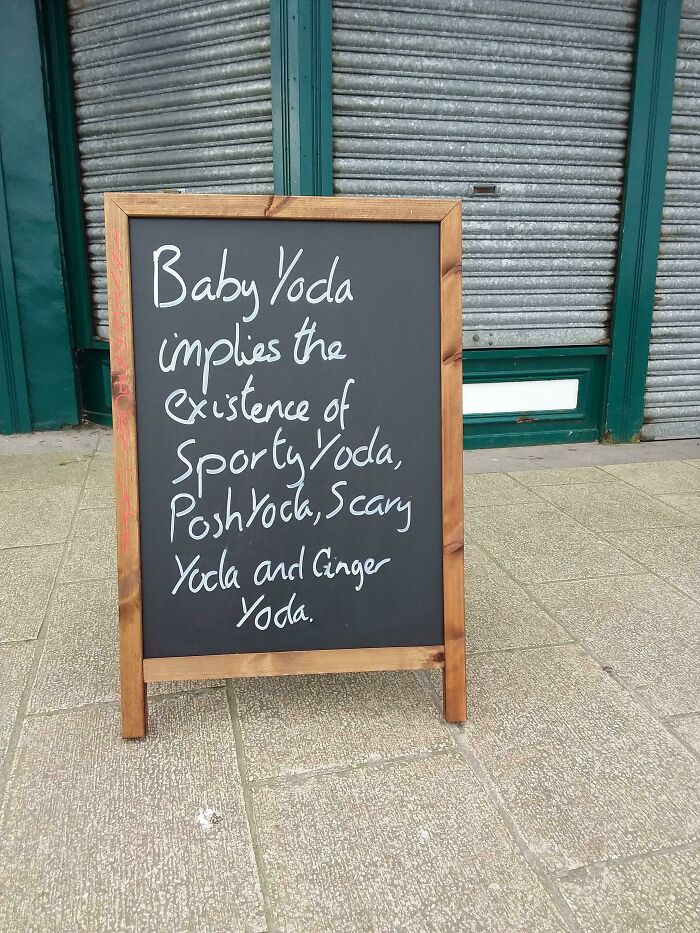 Baby Yoda
implies the
existence of
Sporty Yoda,
Posh Yoda, Scary
Yoda and Ginger
Yoda.